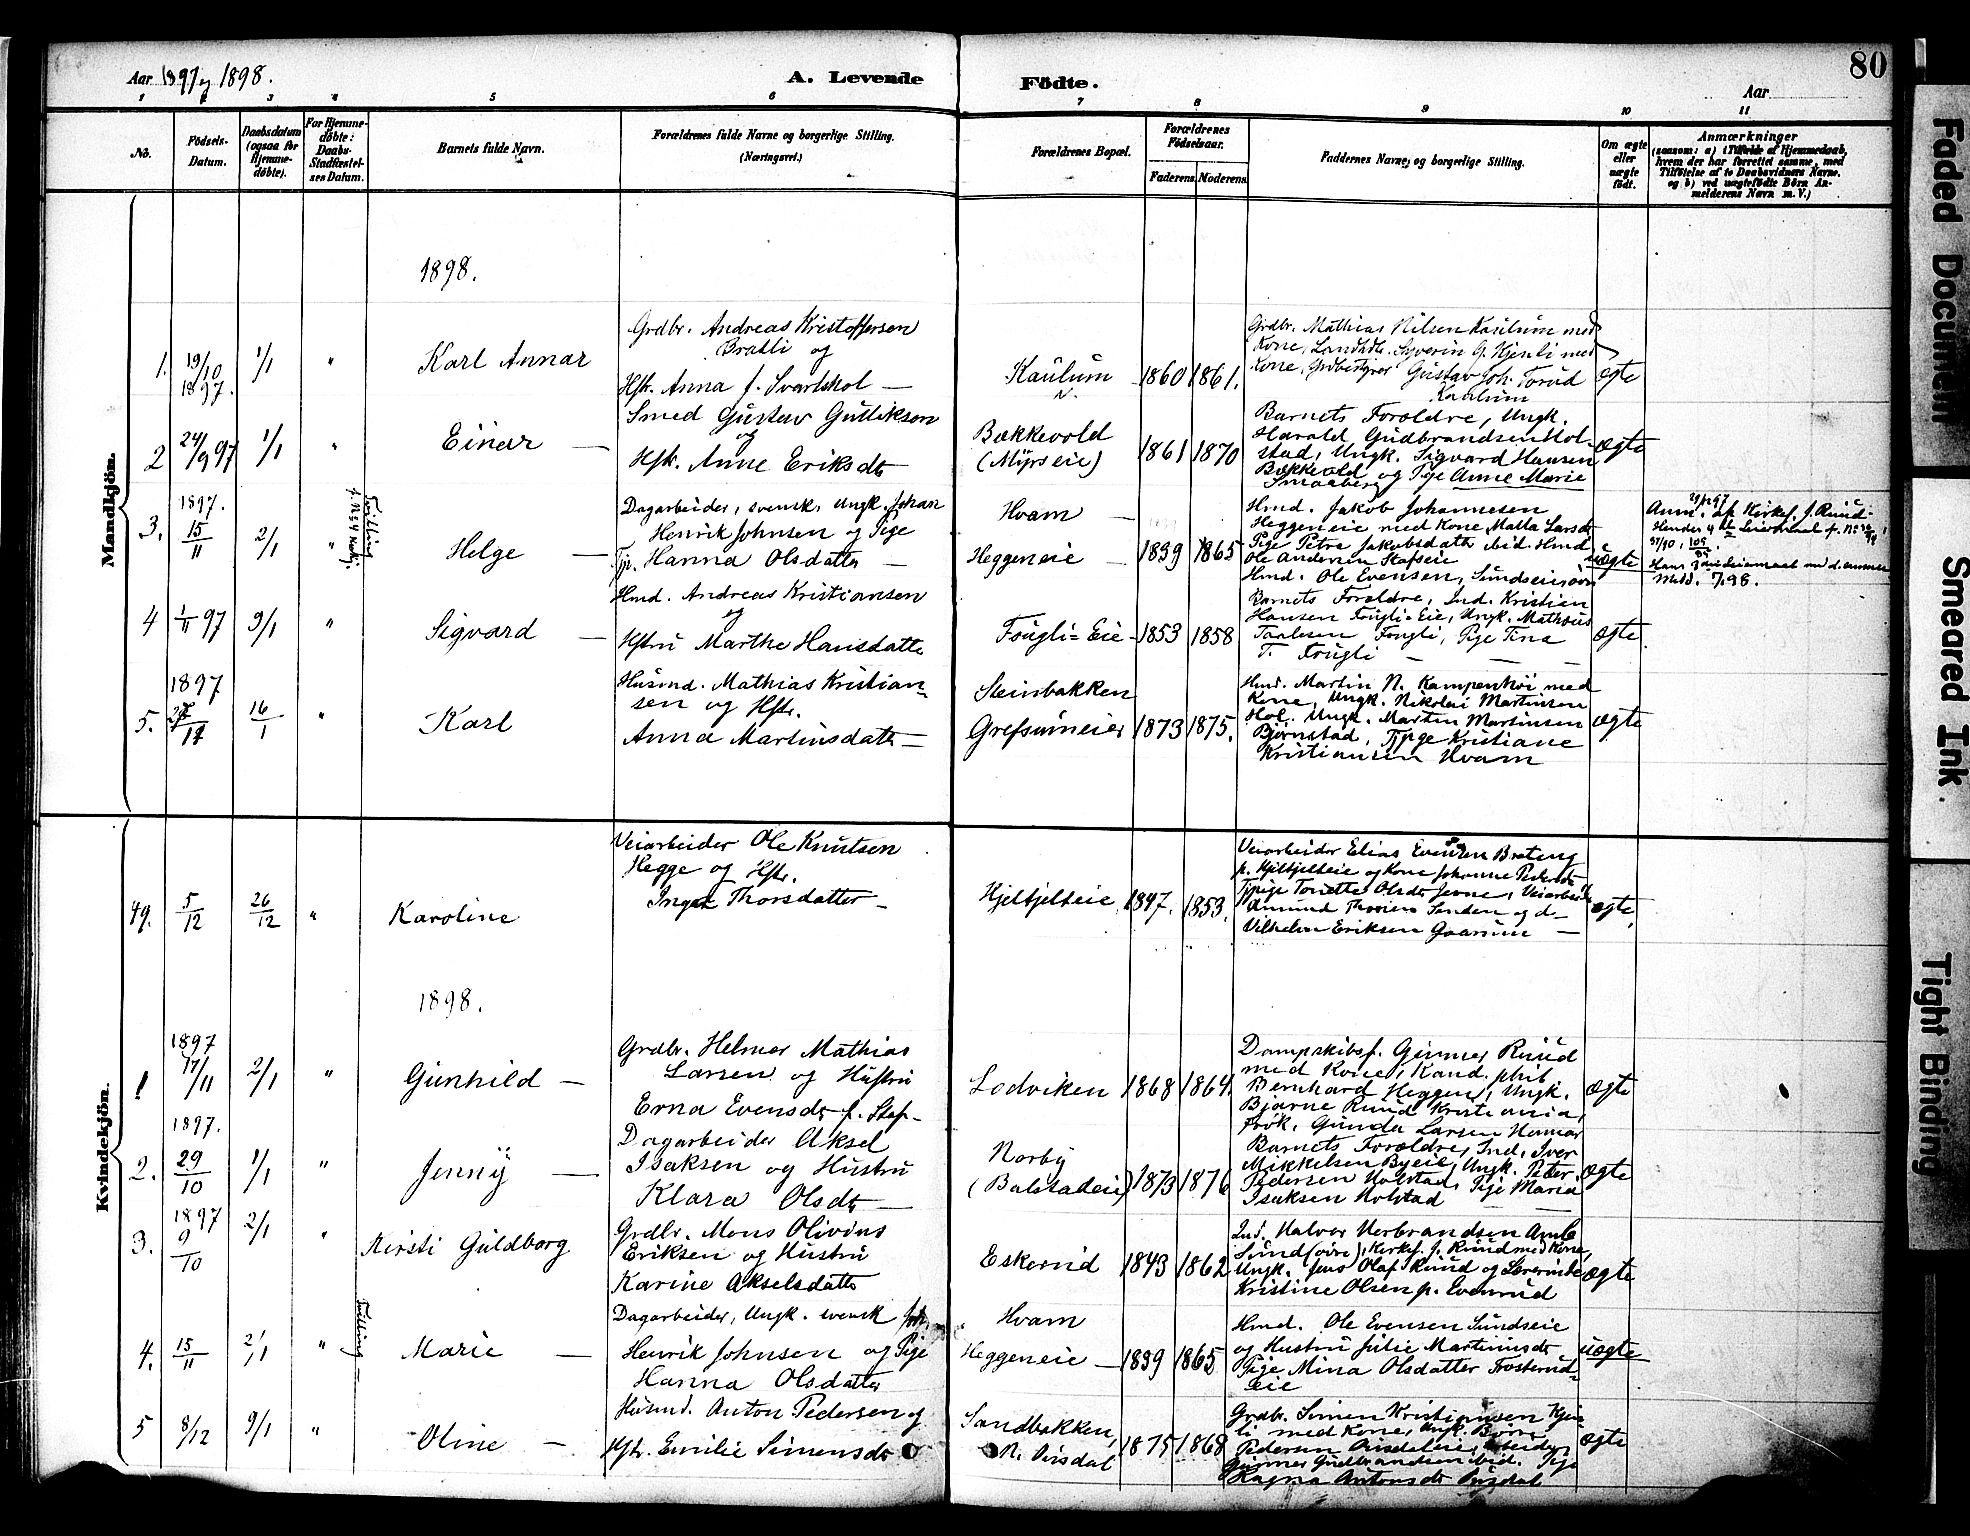 80
Aar 1897 og 1898.
A. Levende Födte.
Aar
1 2 3 4 5 6 7 8 9 10 11
No.
Födsels-
Datum.
Daabsdatum
(ogsaa for
Hjemme-
döbte).
For Hjemme-
döbte:
Daabs-
Stadfæstel-
ses Datum.
Barnets fulde Navn.
Forældrenes fulde Navne og borgerlige Stilling.
(Næringsvei.)
Forældrenes Bopæl.
Forældrenes
Födselsaar.
Faderens. Moderens.
Faddernes Navne og borgerlige Stilling.
Om ægte
eller
uægte
födt.
Anmærkninger
(saasom: a) i Tilfælde af Hjemmedaab,
hvem der har forrettet samme, med
Tilföielse af to Daabsvidners Navne,
og b) ved uægtefödte Börn An-
melderens Navn m. V.)
Mandkjön.
1898.
1. 19/10 1897. 1/1 " Karl Annar
Grdbr. Andreas Kristoffersen
Bratli og
Hstr. Anna f. Svartshol —
Kaulum 1860 1861.
Grdbr. Mathias Nilsen Kaulum med
Kone, Landhdl. Syverin G. Hjenli med
Kone, Grdbestyrer Gustav Joh. Torud
Kaulum
ægte
2 24/9 97 1/1 " Einar —
Smed Gustav Gullikson
og
Hstr. Anne Eriksdtr
Bækkevold
(Myrseie)
1861 1870
Barnets Foreldre, Ungk.
Harald Gudbrandsen Hol-
stad, Ungk. Sigvard Hansen
Bækkevold og Pige Anne Marie
Smaaberg
ægte
3. 1897. 15/11 2/1 " Tvilling Helge —
Dagarbeider, svensk, Ungk. Johan
Henrik Johnsen og Pige
Tjp. Hanna Olsdatter —
Hvam —
Heggeneie — 1839 1865
Hmd. Jakob Johannesen
Heggeneie med Kone Malla Larsdtr
Pige Petra Jakobsdatter ibid. Hmd
Ole Andersen Stafseie
Hmd. Ole Evensen, Sundseie øvre
uægte
Anm. af Kirkes. J. Ruud.
4 1/11 97 9/1 " Sigvard —
Hmd. Andreas Kristiansen
og
Hstru Marthe Hansdatter
Fougli-Eie 1853 1858
Barnets Foreldre, Ind. Kristian
Hansen Fougli-Eie, Ungk. Mathæus
Taalesen Fougli, Pige Tina
T. Fougli — — —
ægte
5. 1897 16/1 " Karl
Husmd. Mathias Kristian-
sen og Hstr.
Anna Martinsdatter —
Steinbakken
Grefsumeier 1873 1875.
Hmd. Martin N. Kampenhøi med
Kone, Ungk. Nikolai Martinsen
Hol. Ungk. Martin Martinsen
Bjørnstad, Tjpge Kristiane
Kristiansen Hvam
ægte
Kvindekjön.
49. 5/12 26/12 " Karoline
Veiarbeider Ole Knutsen
Hegge og Hstr.
Inger Thorsdatter —
Kjeltjelteie 1847. 1853.
Veiarbeider Elias Evensen Brateng
p. Kjeltjelteie og Kone Johanne Pedersdtr
Tjpige Tonette Olsdtr Jevne, Veiarbeider
Amund Thorsen Sanden og d—
Vilhelm Eriksen Gaarum —
ægte,
1898.
1 1897 17/11 2/1 " Gunhild —
Grdbr. Helmer Mathias
Larsen og Hustru
Erna Evensdtr f. Staf-
Lodviken 1868 1864.
Dampskibsf. Gunnar Ruud
med Kone, Kand. phil
Bernhard Heggen, Ungk.
Bjarne Ruud Kristiania,
Frøk. Gunda Larsen Hamar
ægte
2. 1897. 29/10 1/1 " Jenny —
Dagarbeider Aksel
Isaksen og Hustru
Klara Olsdtr —
Norby
(Balstadeie) 1873 1876
Barnets Foreldre, Ind. Iver
Mikkelsen Byeie, Ungk. Peter
Pedersen Holstad, Pige Maria
Isaksen Holstad —
ægte
3. 1897 9/10 2/1 " Kirsti Guldborg
Grdbr. Mons Olivius
Eriksen og Hustru
Karine Akselsdatter
Eskerud 1843 1862
Ind. Halvor Herbrandsen Amb
Sund (øvre), Kirkes. J. Ruud med Kone,
Ungk. Jens Olaf Ruud og Lærerinde
Kristine Olsen p. Evenrud
ægte
4. 15/11 2/1 " Tvilling Marie —
Dagarbeider, Ungk. svensk Joh.
Henrik Johnsen og Pige
Hanna Olsdatter
Hvam
Heggeneie — 1839 1865
Hmd. Ole Evensen Sundseie
og Hustru Julie Martinusdtr
Pige Mina Olsdatter Frosterud-
Eie
uægte
5 8/12 9/1 " Oline —
Husmd. Anton Pedersen og
Hstr. Emilie Simensdtr
Sandbakken,
N. Oirsdal 1875 1868
Grdbr. Simen Kristiansen Hjen-
li med Kone, Ungk. Bernt
Pedersen Oirsdaleie, Arbeider
Gunnar Gudbrandsen ibid. Pige
Ragna Antonsdtr Oirsdal
ægte
Faded Document
Smeared Ink
Tight Binding